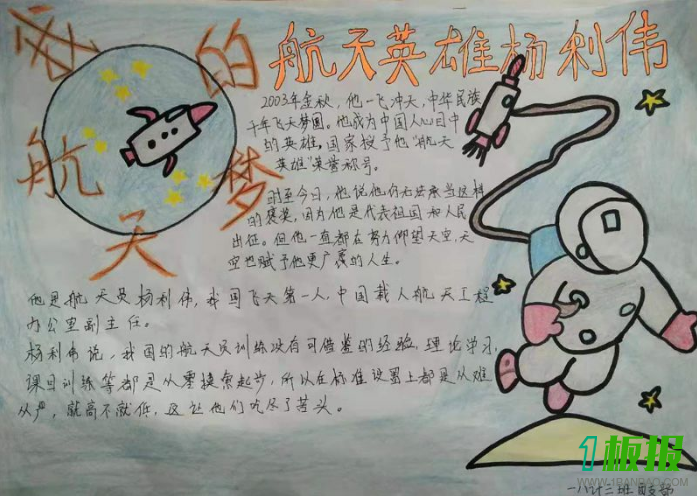 我的航天梦
航天英雄杨利伟
2003年金秋，他一飞冲天，中华民族
千年飞天梦圆。他成为中国人心目中
的英雄，国家授予他“航天
英雄”荣誉称号。
时至今日，他说他仍无法承当这样
的褒奖，因为他是代表祖国和人民
出征。但他一直都在努力仰望天空，天
空也赋予他更广袤的人生。
他是航天员杨利伟，我国飞天第一人，中国载人航天工程
办公室副主任。
杨利伟说，我国的航天员训练没有可借鉴的经验，理论学习，
课目训练等都是从零摸索起步，所以在标准设置上都是从难
从严，就高不就低，这让他们吃尽了苦头。
1板报
WWW.1BANBAO.COM